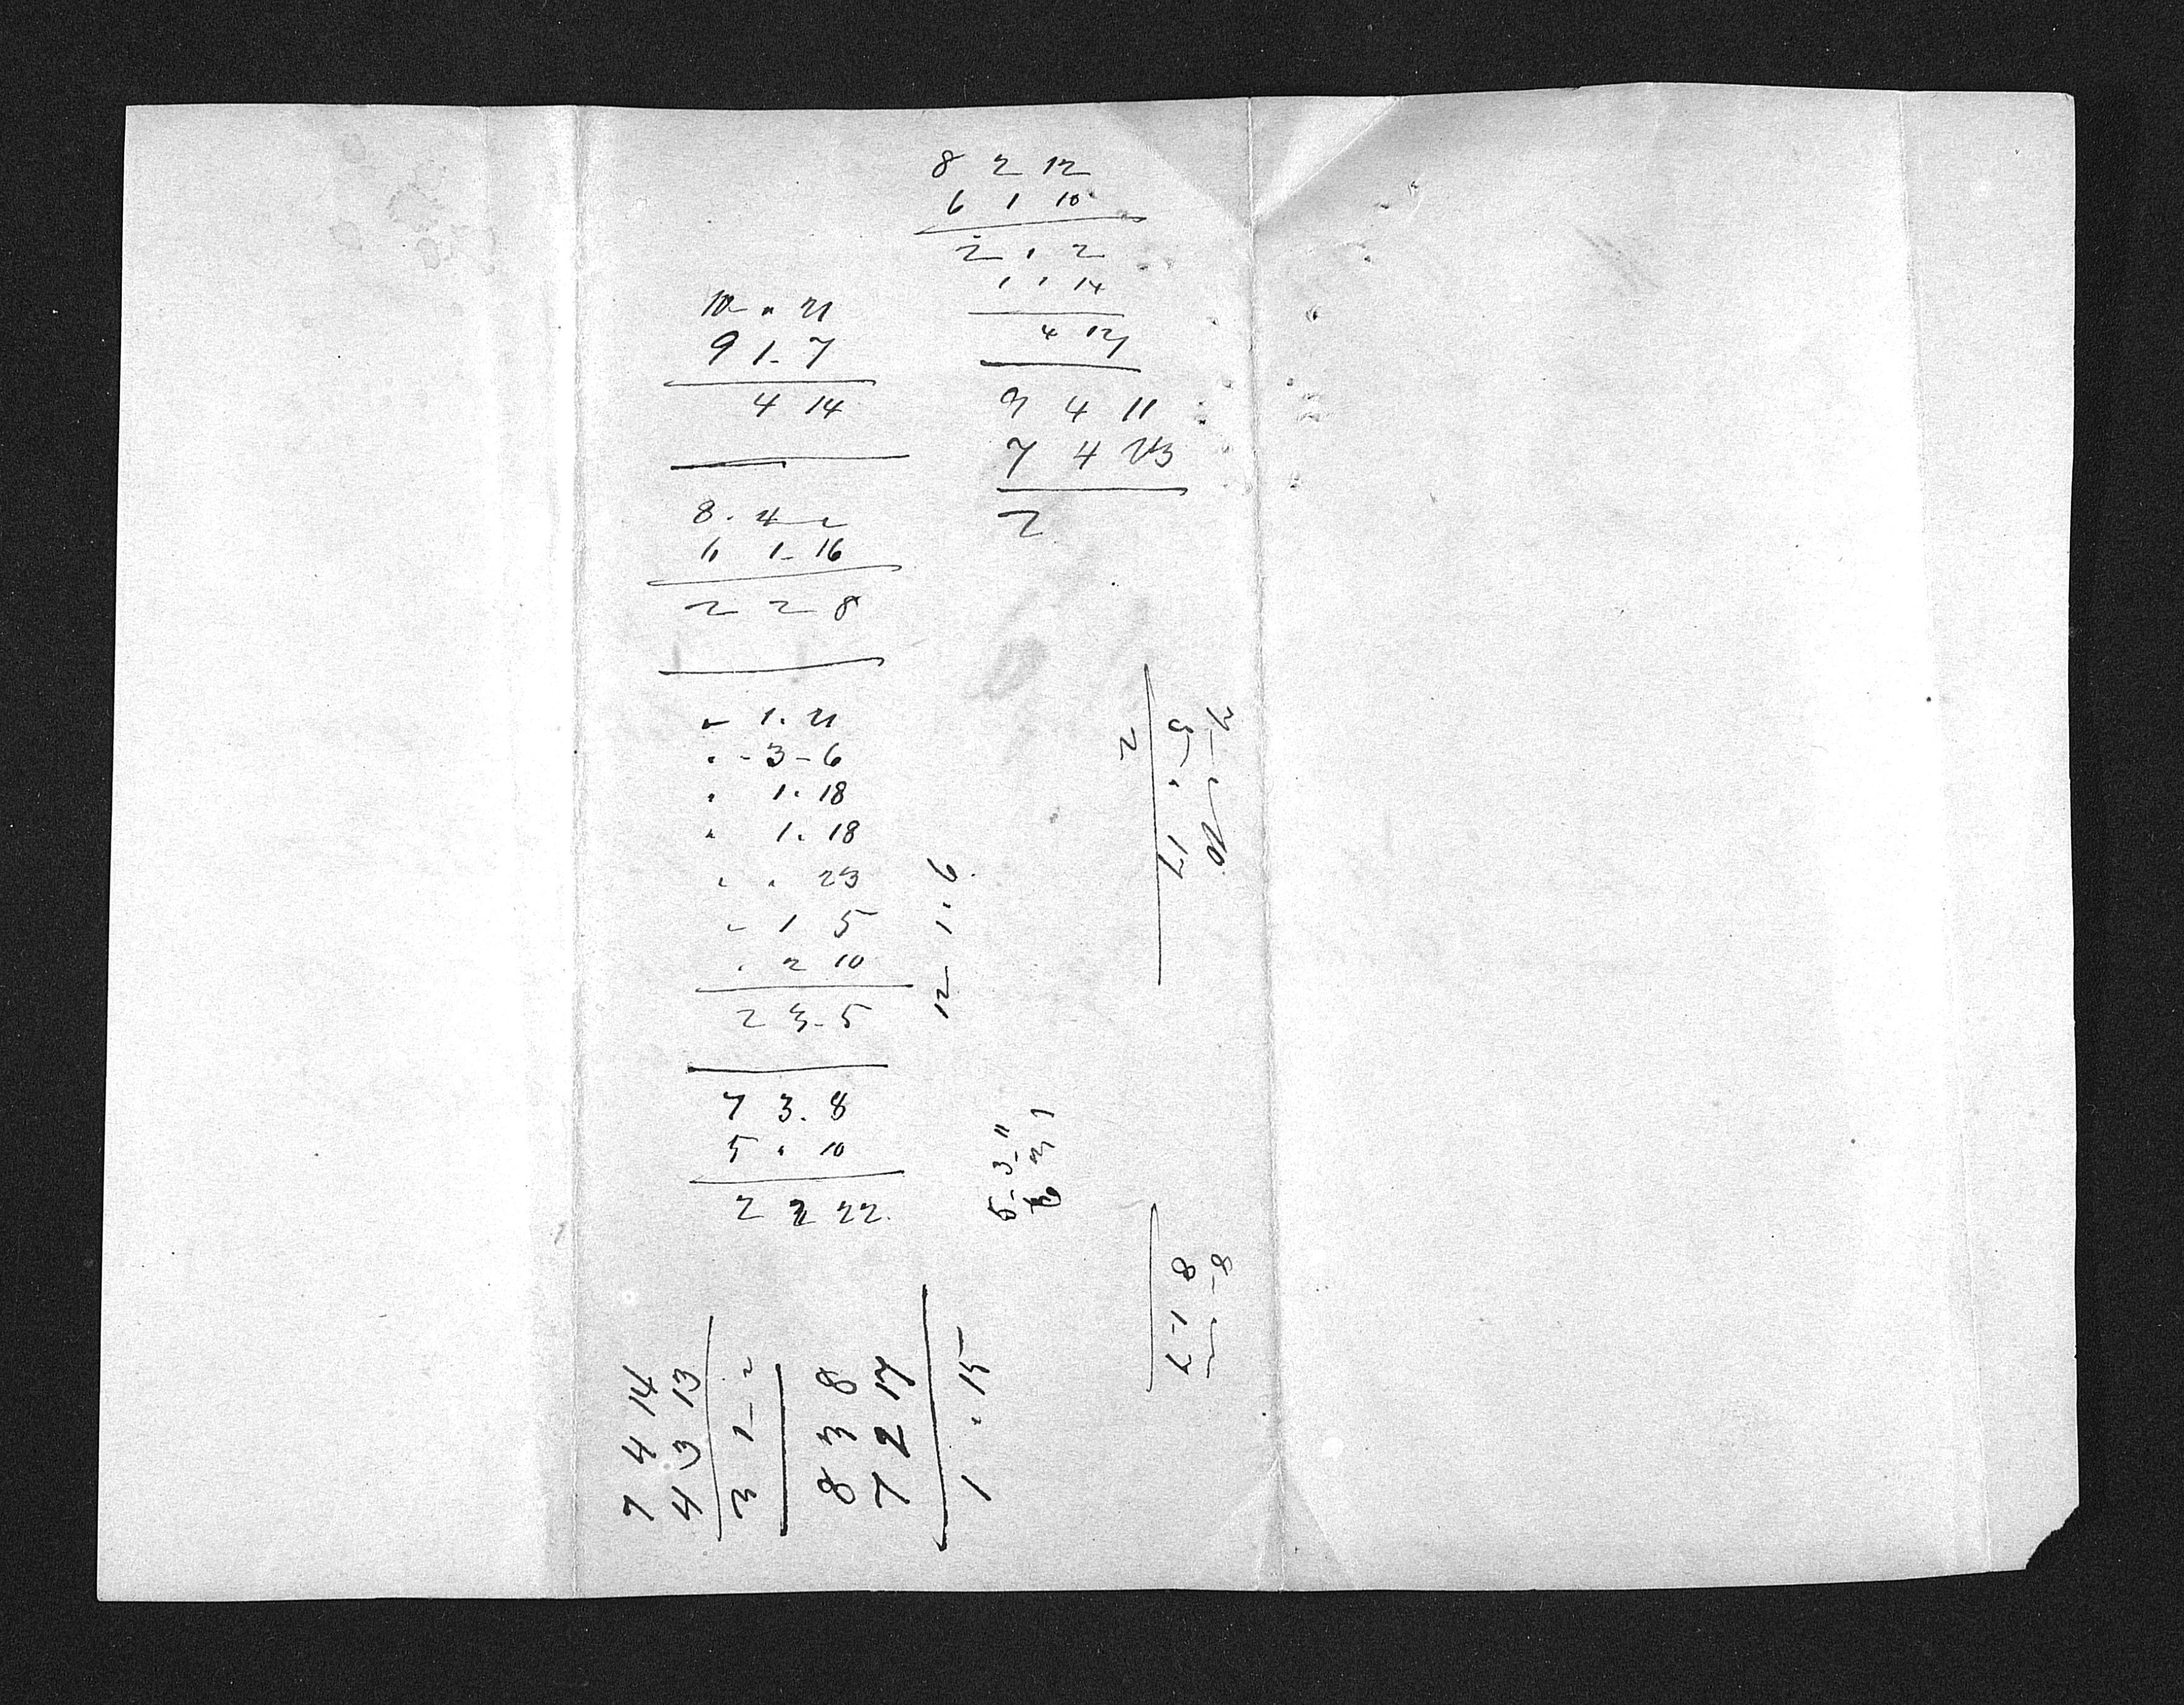 8 2 12
6 1 10
2 . 2
1 1 14
4 12
9 4 11
7 4 23
2
10 " 21
9 1- 7
4 14
8 . 4 -
" 1- 16
2 2 8
- 1. 21
. - 3 - 6
. 1. 18
" 1. 18
. . 23
- 1 5
. 2 10
2 3 - 5
7 3. 8
5 . 10
2 2 22.
12 1. 6.
5-3-11
7 4 14
4 3 13
3 1-2
8 3 8
7 2 17
1 . 15
5 . 17
2